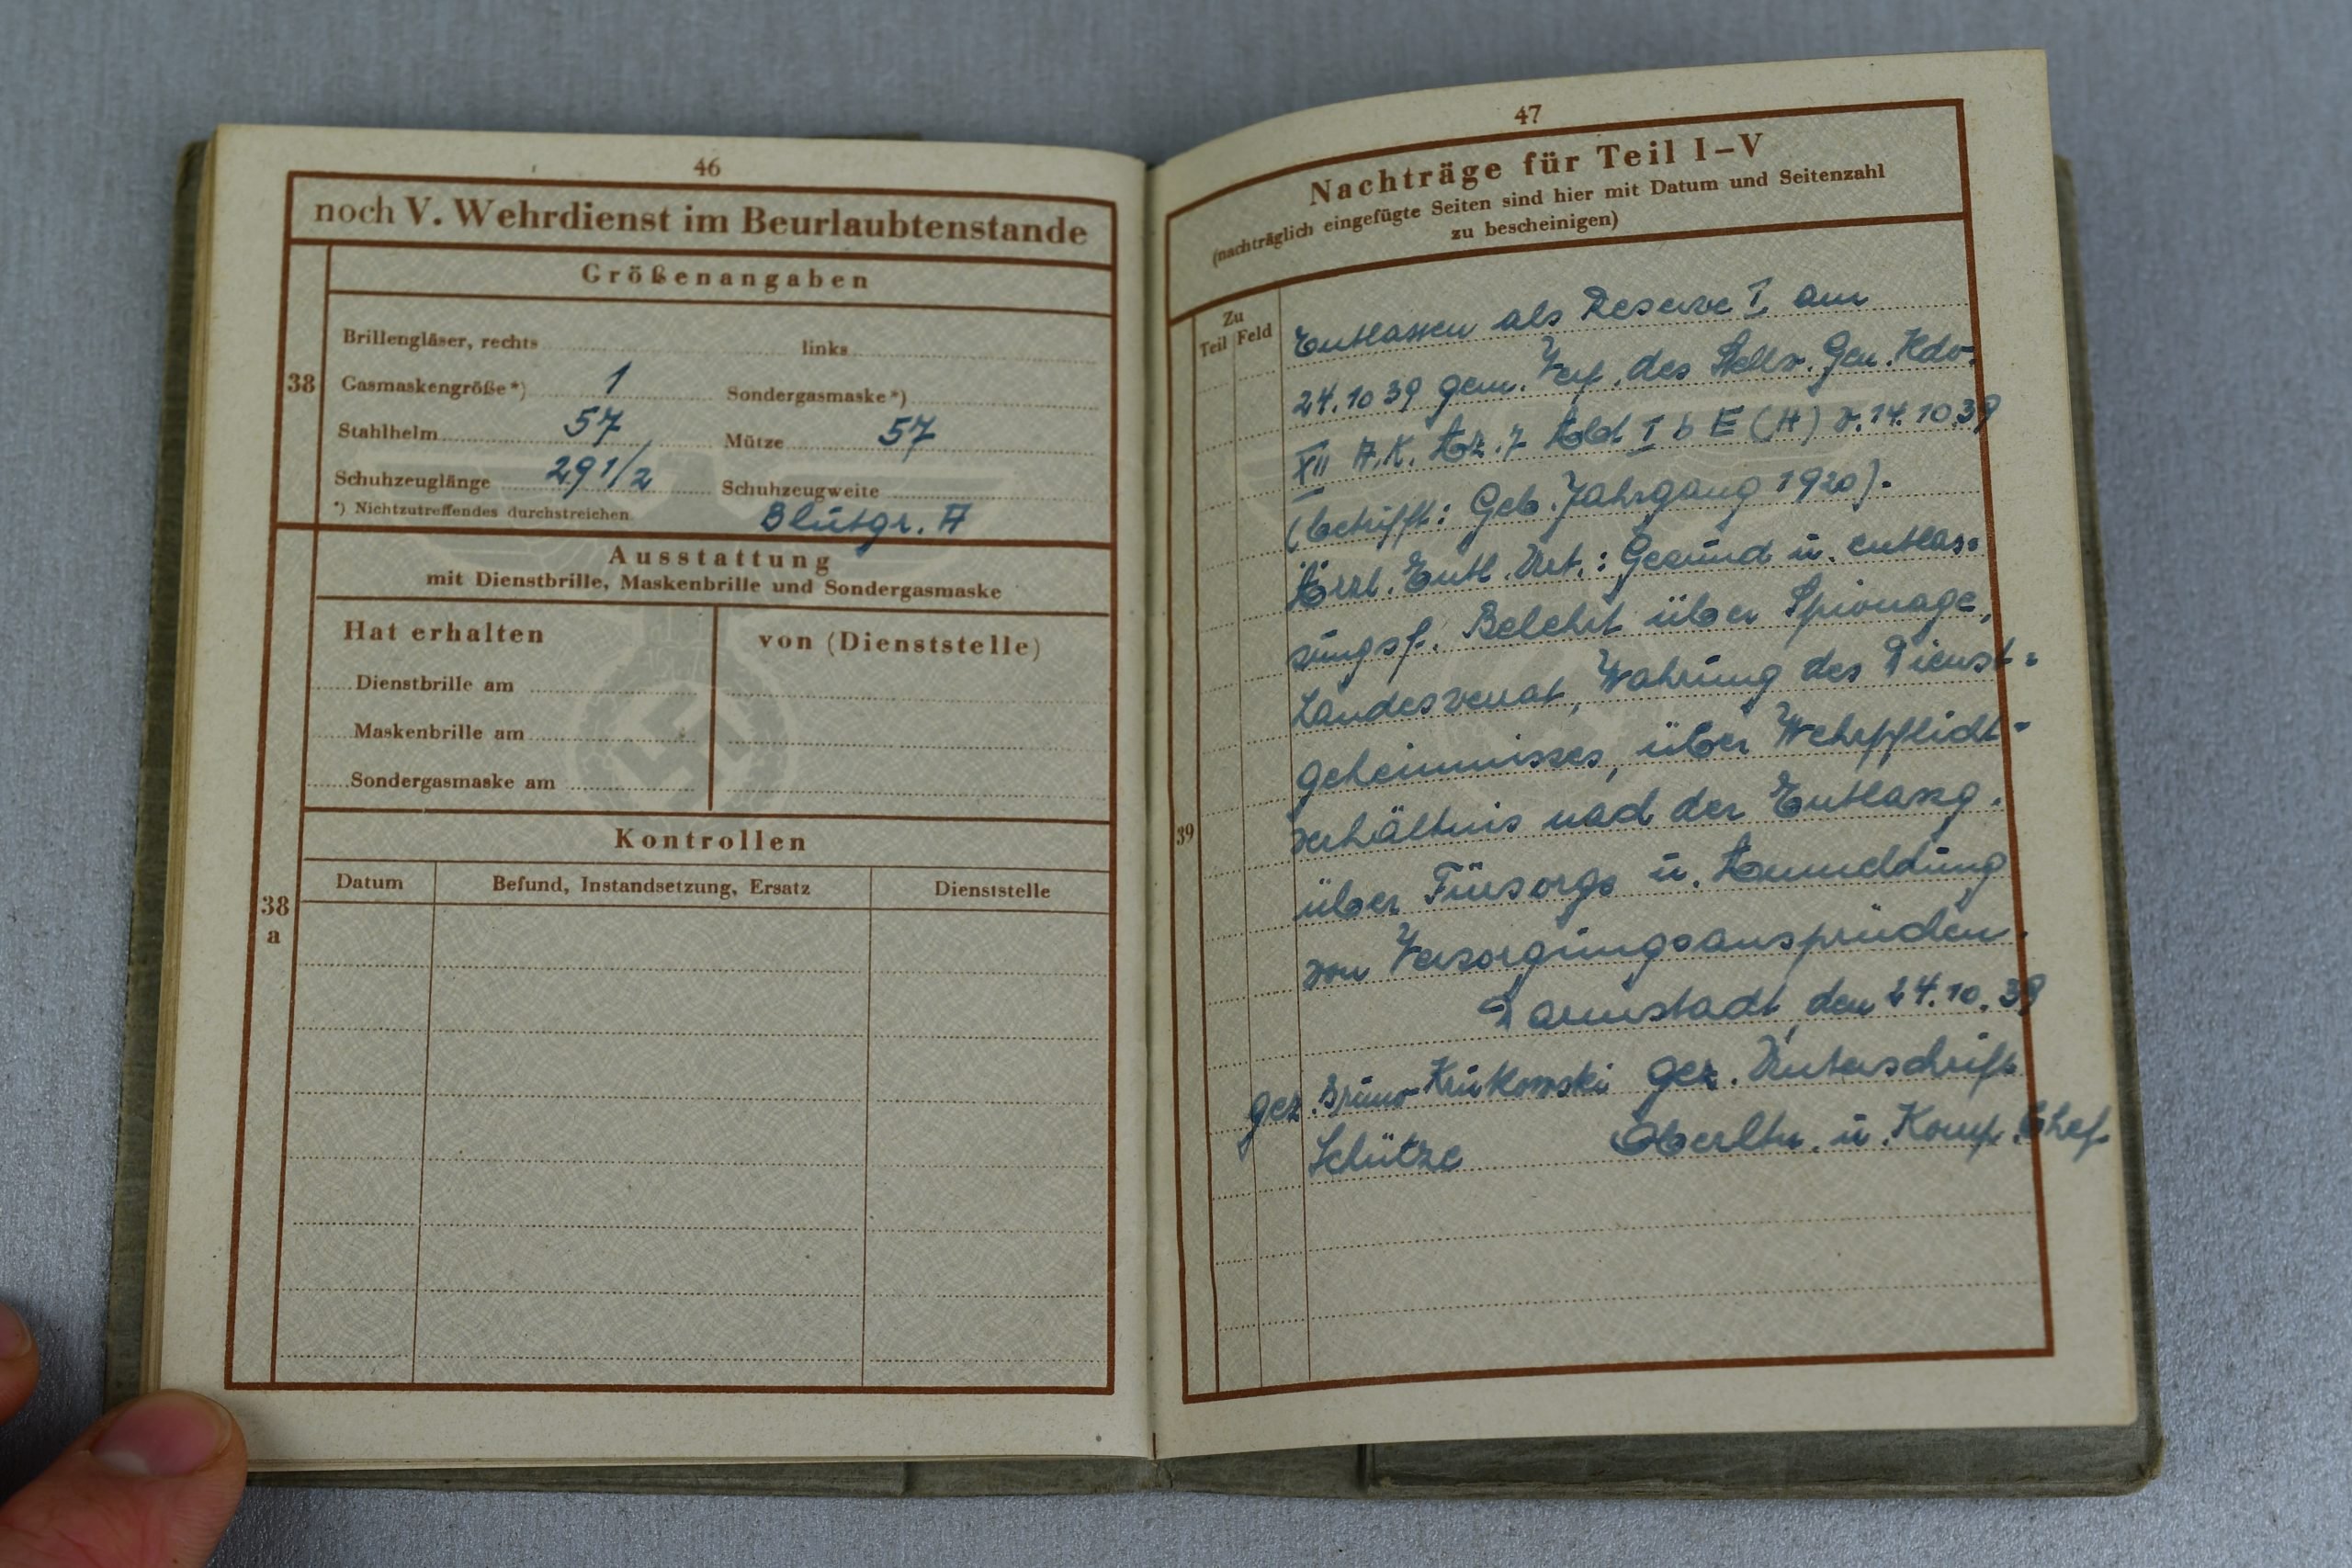 46
noch V. Wehrdienst im Beurlaubtenstande
38
Größenangaben
Brillengläser, rechts links
Gasmaskengröße*) 1 Sondergasmaske*)
Stahlhelm 57 Mütze 57
Schuhzeuglänge 29 1/2 Schuhzeugweite
*) Nichtzutreffendes durchstreichen Blutgr. A
38 a
Ausstattung
mit Dienstbrille, Maskenbrille und Sondergasmaske
Hat erhalten von (Dienststelle)
Dienstbrille am
Maskenbrille am
Sondergasmaske am
Kontrollen
Datum Befund, Instandsetzung, Ersatz Dienststelle
47
Nachträge für Teil I–V
(nachträglich eingefügte Seiten sind hier mit Datum und Seitenzahl
zu bescheinigen)
Zu
Teil Feld
39
Entlassen als Reserve I am
24.10 39 gem. Verf. des Stellv. Gen. Kdo.
XII A.K. Az. 7 Abt I b E (H) v. 14.10.39
(betrifft: Geb. Jahrgang 1920).
Ärzl. Entl. Urt.: Gesund u. entlas-
sungsf. Belehrt über Spionage,
Landesverrat, Wahrung des Dienst-
geheimnisses, über Wehrpflicht-
verhältnis nach der Entlassg.
über Fürsorge u. Anmeldung
von Versorgungsansprüchen.
Darmstadt, den 24.10.39
gez. Bruno Krukowski gez. Unterschrift
Schütze Oberltn. u. Komp. Chef.